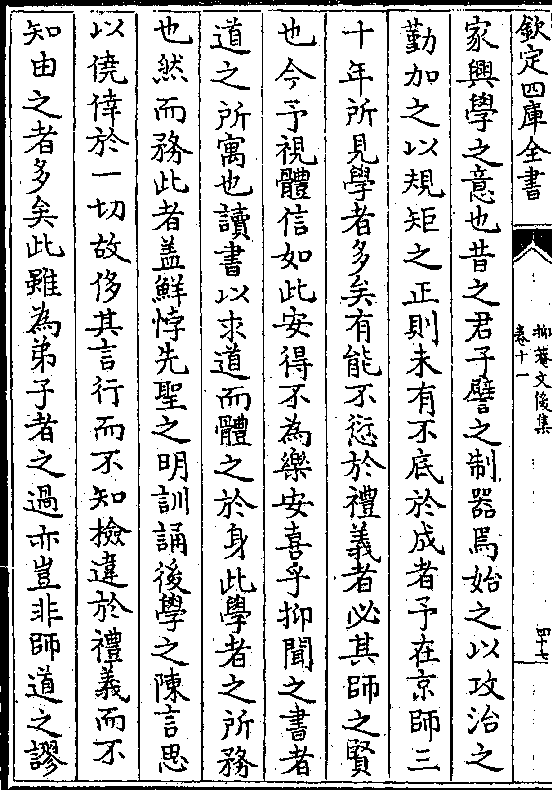 欽定四庫全書
抑菴文後集
卷十一
四十七
家興學之意也昔之君子譬之制器焉始之以攻治之
勤加之以規矩之正則未有不底於成者予在京師三
十年所見學者多矣有能不愆於禮義者必其師之賢
也今予視體信如此安得不為樂安喜乎抑聞之書者
道之所寓也讀書以求道而體之於身此學者之所務
也然而務此者盖鮮悖先聖之明訓誦後學之陳言思
以僥倖於一切故侈其言行而不知檢違於禮義而不
知由之者多矣此雖為弟子者之過亦豈非師道之謬